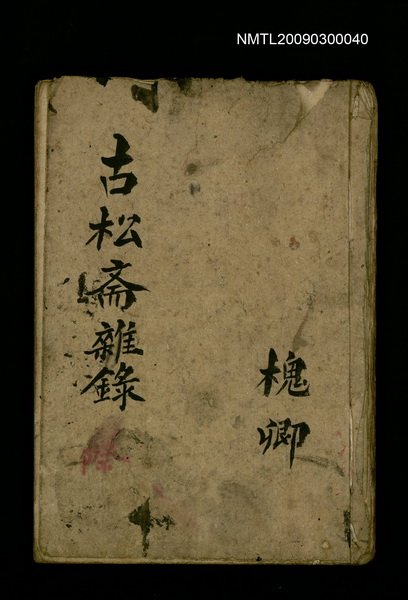 NMTL20090300040
槐卿
古松斎雜錄